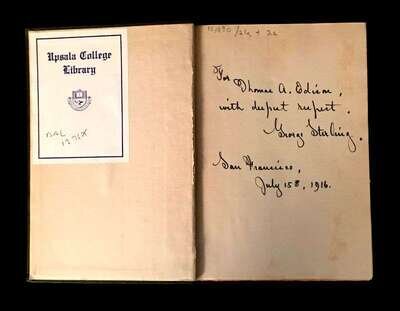 Upsala College
Library
BAL
For Thomas A. Edison,
with deepest respect.
George Sterling.
San Francisco,
July 15th, 1916.